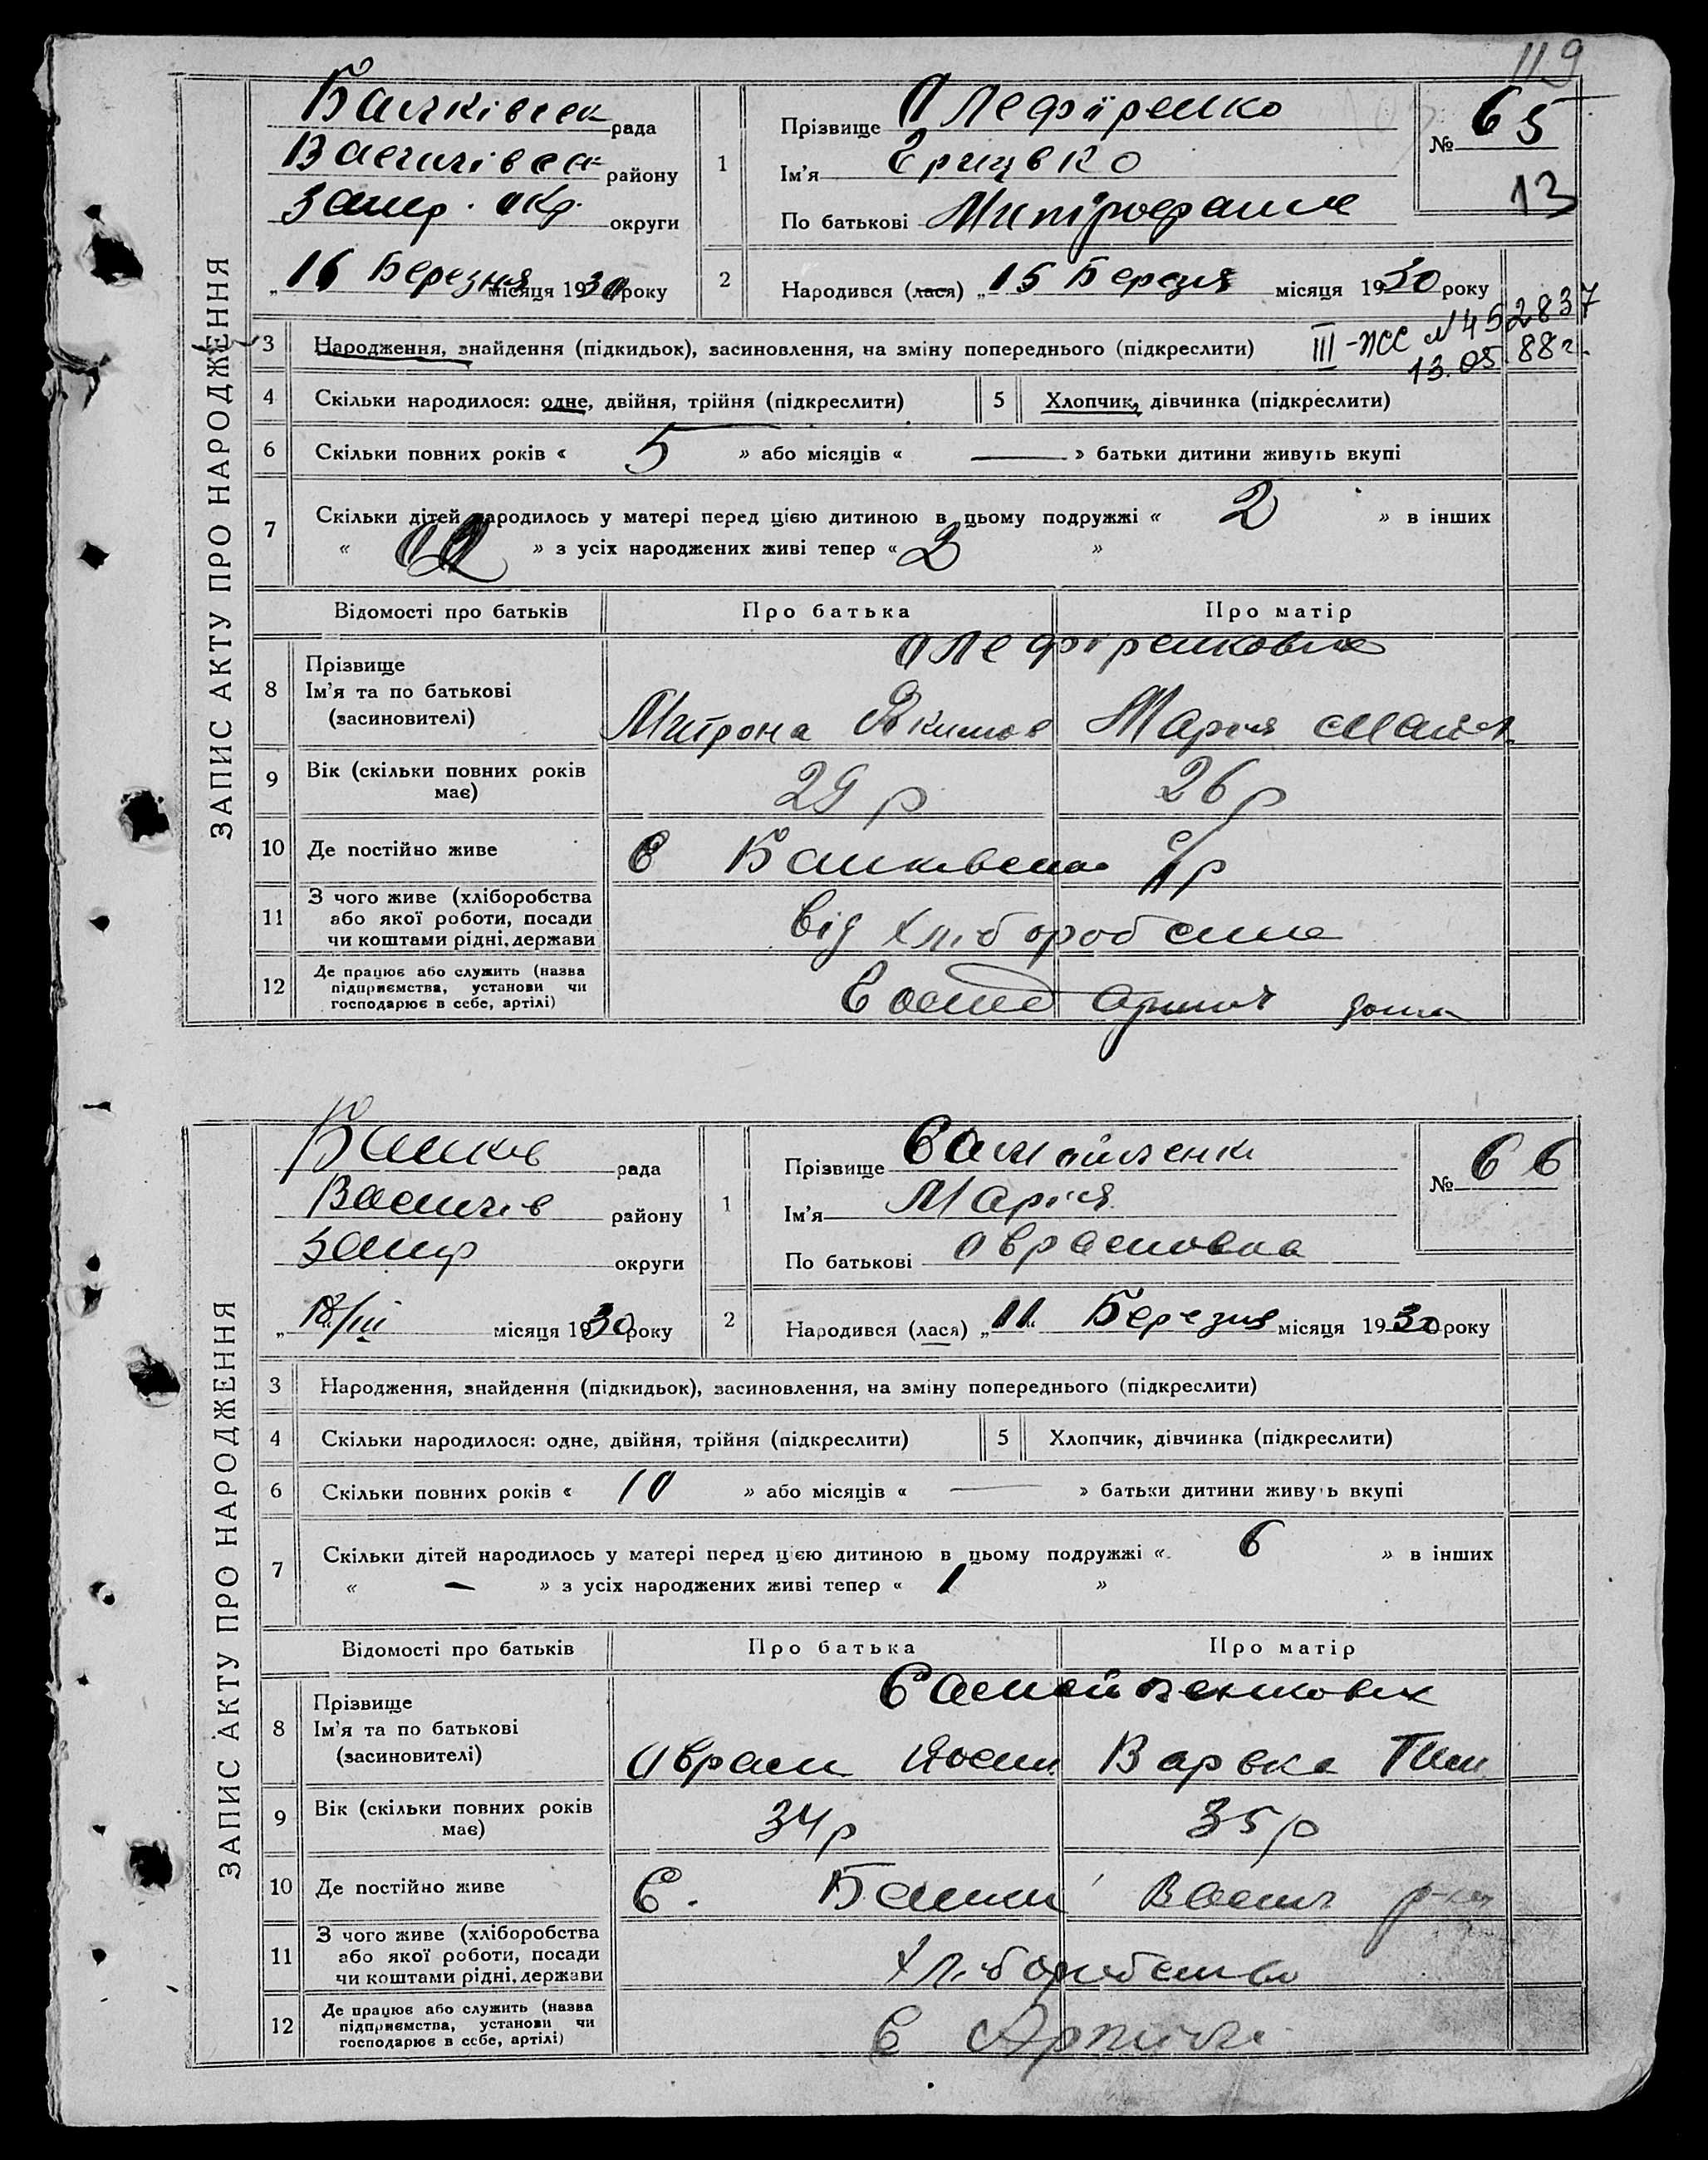 119
ЗАПИС АКТУ ПРО НАРОДЖЕННЯ
рада
району
Запор. окр. округи
16 Березня місяця 1930 року
1
Прізвище Олефіренко
Ім'я Грицько
По батькові
№ 65
13
2
Народився (лася) „15 Березня місяця 1930 року
III-ЖС №452837
13.05.88г.
3
Народження, знайдення (підкидьок), засиновлення, на зміну попереднього (підкреслити)
4
Скільки народилося: одне, двійня, трійня (підкреслити)
5
Хлопчик, дівчинка (підкреслити)
6
Скільки повних років « 5 » або місяців « — » батьки дитини живуть вкупі
7
Скільки дітей народилось у матері перед цією дитиною в цьому подружжі « 2 » в інших
« » з усіх народжених живі тепер « 2 »
Відомості про батьків
Про батька
Про матір
8
Прізвище
Ім'я та по батькові
(засиновителі)
Олефіренкови
Митрона Яким
Марія
9
Вік (скільки повних років має)
29 р
26 р
10
Де постійно живе
с
11
З чого живе (хліборобства або якої роботи, посади чи коштами рідні, держави
від хліборобства
12
Де працює або служить (назва підприємства, установи чи господарює в себе, артілі)
ЗАПИС АКТУ ПРО НАРОДЖЕННЯ
рада
району
Запор округи
18/III місяця 1930 року
1
Прізвище Самойленко
Ім'я Марія
По батькові Аврамовна
№ 66
2
Народився (лася) „11" Березня місяця 1930 року
3
Народження, знайдення (підкидьок), засиновлення, на зміну попереднього (підкреслити)
4
Скільки народилося: одне, двійня, трійня (підкреслити)
5
Хлопчик, дівчинка (підкреслити)
6
Скільки повних років « 10 » або місяців « — » батьки дитини живуть вкупі
7
Скільки дітей народилось у матері перед цією дитиною в цьому подружжі « 6 » в інших
« – » з усіх народжених живі тепер « 1 »
Відомості про батьків
Про батька
Про матір
8
Прізвище
Ім'я та по батькові
(засиновителі)
Самойленкови
Аврам
Варвка Тим
9
Вік (скільки повних років має)
34 р
35 р
10
Де постійно живе
С.
11
З чого живе (хліборобства або якої роботи, посади чи коштами рідні, держави
Хліборобство
12
Де працює або служить (назва підприємства, установи чи господарює в себе, артілі)
в Артілі